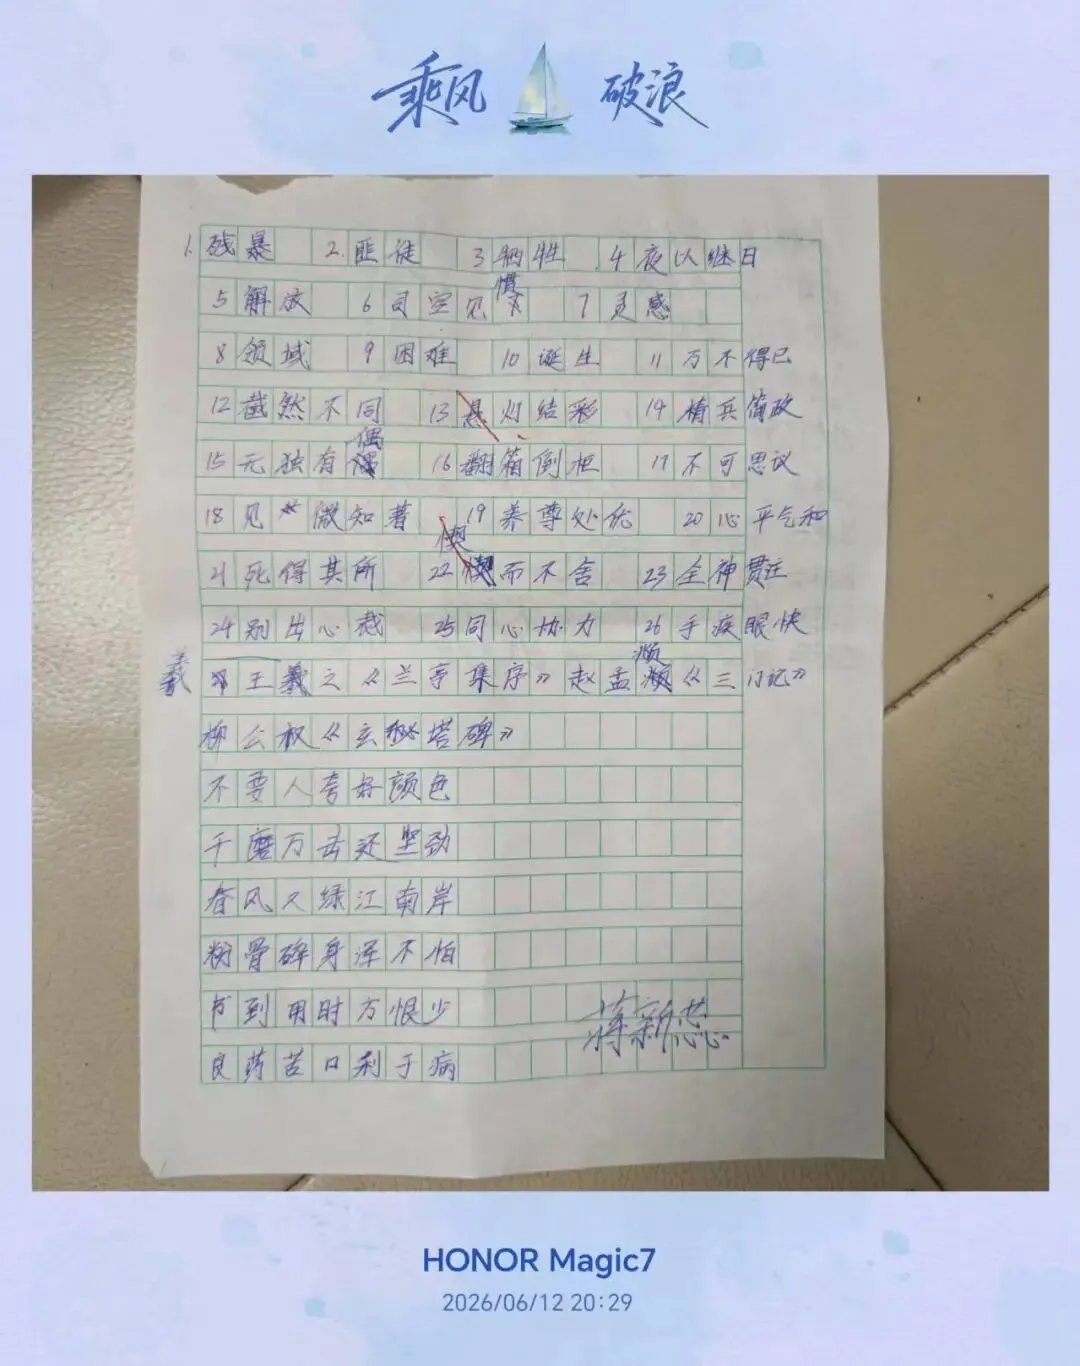 乘风 破浪
1. 残暴 2. 匪徒 3 牺牲 4 夜以继日
惯
5 解放 6 司空见 7 灵感
8 领域 9 困难 10 诞生 11 万不得已
12 截然不同 13 悬灯结彩 14 精兵简政
偶
15 无独有偶 16 翻箱倒柜 17 不可思议
18 见微知著 19 养尊处优 20 心平气和
楔
21 死得其所 22 楔而不舍 23 全神贯注
24 别出心裁 25 同心协力 26 手疾眼快
羲 頫
王羲之《兰亭集序》赵孟頫《三门记》
柳公权《玄秘塔碑》
不要人夸好颜色
千磨万击还坚劲
春风又绿江南岸
粉骨碎身浑不怕
书到用时方恨少
蒋新蕊
良药苦口利于病
HONOR Magic7
2026/06/12 20:29